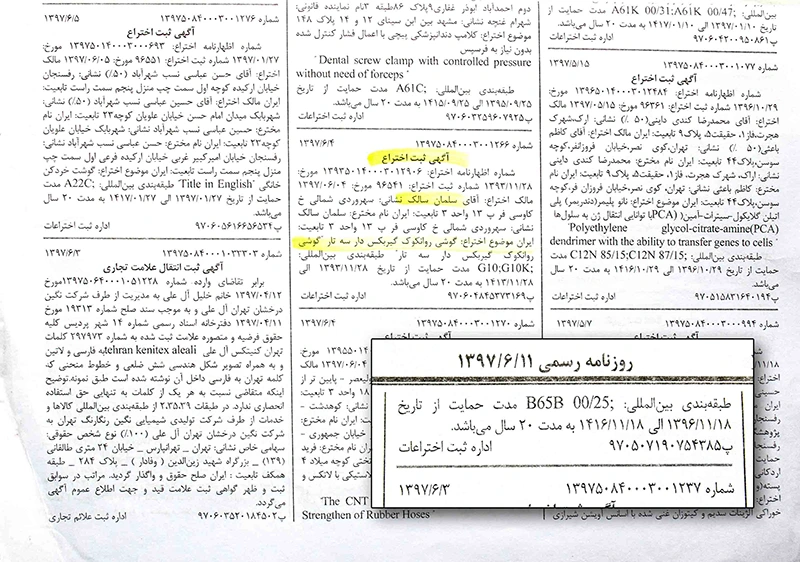 بین‌المللی: A61K 00/31;A61K 00/47; مدت حمایت از
تاریخ ۱۳۹۷/۰۱/۱۰ الی ۱۴۱۷/۰۱/۱۰ به مدت ۲۰ سال می‌باشد.
پ۹۷۰۶۰۴۲۰۰۹۵۰۸۶۱ اداره ثبت اختراعات
شماره ۱۳۹۷۵۰۸۴۰۰۰۳۰۰۱۰۷۷ ۱۳۹۷/۵/۱۵
آگهی ثبت اختراع
شماره اظهارنامه اختراع: ۱۳۹۶۵۰۱۴۰۰۰۳۰۱۲۴۸۴ مورخ:
۱۳۹۶/۱۰/۲۹ شماره ثبت اختراع: ۹۶۳۶۱ مورخ: ۱۳۹۷/۰۵/۱۵
مالک اختراع: آقای محمدرضا کندی داینی (۵۰ ٪) نشانی: اراک،شهرک
هجرت،فاز۱، حقیقت۵، پلاک۹ تابعیت: ایران مالک اختراع: آقای کاظم
باعثی (۵۰ ٪) نشانی: تهران، کوی نصر،خیابان فروزانفر،کوچه
سوسن،پلاک۴۴ تابعیت: ایران نام مخترع: محمدرضا کندی داینی
نشانی: اراک، شهرک هجرت، فاز۱، حقیقت۵، پلاک۹ تابعیت: ایران نام
مخترع: کاظم باعثی نشانی: تهران، کوی نصر، خیابان فروزان فر،کوچه
سوسن،پلاک۴۴ تابعیت: ایران موضوع اختراع: نانو پلیمر(دندریمر) پلی
اتیلن گلایکول-سیترات-آمین( PCA)با توانایی انتقال ژن به سلول‌ها
'Polyethylene glycol-citrate-amine(PCA)
dendrimer with the ability to transfer genes to cells'
طبقه‌بندی بین‌المللی: C12N 85/15;C12N 87/15; مدت
حمایت از تاریخ ۱۳۹۶/۱۰/۲۹ الی ۱۴۱۶/۱۰/۲۹ به مدت ۲۰ سال
می‌باشد.
پ۹۷۰۵۱۵۸۳۱۶۴۰۱۹۴ اداره ثبت اختراعات
شماره ۱۳۹۷۵۰۸۴۰۰۰۳۰۰۰۹۹۴ ۱۳۹۷/۵/۷
خوراکی آلژینات سدیم و کیتوزان غنی شده با اسانس آویشن شیرازی
دوم احمدآباد ابوذر غفاری۹پلاک ۸۶طبقه ۳نام نماینده قانونی:
شهرام غنچه نشانی: مشهد بین ابن سینای ۱۲ و ۱۴ پلاک ۱۴۸
موضوع اختراع: کلامپ دندانپزشکی پیچی با اعمال فشار کنترل شده
بدون نیاز به فرسپس
'Dental screw clamp with controlled pressure
without need of forceps '
طبقه‌بندی بین‌المللی: A61C; مدت حمایت از تاریخ
۱۳۹۵/۰۹/۲۵ الی ۱۴۱۵/۰۹/۲۵ به مدت ۲۰ سال می‌باشد.
پ۹۷۰۶۰۳۲۵۹۶۰۷۹۲۵ اداره ثبت اختراعات
شماره ۱۳۹۷۵۰۸۴۰۰۰۳۰۰۱۲۶۶ ۱۳۹۷/۶/۴
آگهی ثبت اختراع
شماره اظهارنامه اختراع: ۱۳۹۳۵۰۱۴۰۰۰۳۰۱۲۹۰۶ مورخ:
۱۳۹۳/۱۱/۲۸ شماره ثبت اختراع: ۹۶۵۴۱ مورخ: ۱۳۹۷/۰۶/۰۴
مالک اختراع: آقای سلمان سالک نشانی: سهروردی شمالی خ
کاوسی فر پ ۱۳ واحد ۳ تابعیت: ایران نام مخترع: سلمان سالک
نشانی: سهروردی شمالی خ کاوسی فر پ ۱۳ واحد ۳ تابعیت:
ایران موضوع اختراع: گوشی روانکوک گیربکس دار سه تار 'گوشی
روانکوک گیربکس دار سه تار' طبقه‌بندی بین‌المللی:
G10;G10K; مدت حمایت از تاریخ ۱۳۹۳/۱۱/۲۸ الی
۱۴۱۳/۱۱/۲۸ به مدت ۲۰ سال می‌باشد.
پ۹۷۰۶۰۴۸۴۵۳۷۳۱۶۹ اداره ثبت اختراعات
شماره ۱۳۹۷۵۰۸۴۰۰۰۳۰۰۱۲۷۰ ۱۳۹۷/۶/۴
'The CNT
Strengthen of Rubber Hoses '
شماره ۱۳۹۷۵۰۸۴۰۰۰۳۰۰۱۲۷۶ ۱۳۹۷/۶/۵
آگهی ثبت اختراع
شماره اظهارنامه اختراع: ۱۳۹۷۵۰۱۴۰۰۰۳۰۰۰۶۹۳ مورخ:
۱۳۹۷/۰۱/۲۷ شماره ثبت اختراع: ۹۶۵۵۱ مورخ: ۱۳۹۷/۰۶/۰۵ مالک
اختراع: آقای حسن عباسی نسب شهرآباد (۵۰٪) نشانی: رفسنجان
خیابان ارکیده کوچه اول سمت چپ منزل پنجم سمت راست تابعیت:
ایران مالک اختراع: آقای حسین عباسی نسب شهرآباد (۵۰٪) نشانی:
شهربابک میدان امام حسن خیابان علویان کوچه۲۳ تابعیت: ایران نام
مخترع: حسین عباسی نسب شهرآباد نشانی: شهربابک خیابان علویان
کوچه۲۳ تابعیت: ایران نام مخترع: حسن عباسی نسب شهرآباد نشانی:
رفسنجان خیابان امیرکبیر غربی خیابان ارکیده کوچه فرعی اول سمت چپ
منزل پنجم سمت راست تابعیت: ایران موضوع اختراع: گوشت خردکن
خانگی 'Title in English' طبقه‌بندی بین‌المللی: A22C; مدت
حمایت از تاریخ ۱۳۹۷/۰۱/۲۷ الی ۱۴۱۷/۰۱/۲۷ به مدت ۲۰ سال
می‌باشد.
پ۹۷۰۶۰۵۶۱۶۶۵۶۵۴ اداره ثبت اختراعات
شماره ۱۳۹۷۵۰۸۴۰۰۰۱۰۳۲۳۰۳ ۱۳۹۷/۶/۳
آگهی ثبت انتقال علامت تجاری
برابر تقاضای وارده شماره ۱۳۹۷۵۰۶۴۰۰۰۱۰۵۱۲۲۸مورخ
۱۳۹۷/۰۴/۱۲ خانم خلیل آل علی به مدیریت از طرف شرکت نگین
درخشان تهران آل علی و به موجب سند صلح شماره ۱۹۳۱۳ مورخ
۱۳۹۷/۰۴/۱۱ دفترخانه اسناد رسمی شماره ۱۴ شهر پردیس کلیه
حقوق فرضیه و متصوره علامت ثبت شده به شماره ۲۹۷۹۷۳ کلمات
تهران کنیتکس آل علی tehran kenitex alealiبه فارسی و لاتین
و به همراه تصویر شکل هندسی شش ضلعی و خطوط منحنی که
کلمه تهران به فارسی داخل آن نوشته شده است طبق نمونه.توضیح
اینکه متقاضی نسبت به هر یک از کلمات به تنهایی حق استفاده
انحصاری ندارد. در طبقات ۲،۳۵،۳۹ از طبقه‌بندی بین‌المللی کالاها و
خدمات از طرف شرکت تولیدی شیمیایی نگین رنگارنگ تهران به
شرکت نگین درخشان تهران آل علی (۱۰۰٪) نوع شخص حقوقی:
سهامی خاص نشانی: تهران - تهرانپارس - خیابان ۲۴ متری طالقانی
(۱۳۹) _ بزرگراه شهید زین‌الدین ( وفادار ) _ پلاک ۲۸۴ _ طبقه
همکف تابعیت : ایران صلح حقوق و واگذار گردید. مراتب در سوابق
ثبت و ظهر گواهی ثبت علامت قید و جهت اطلاع عموم آگهی
می‌گردد.
پ۹۷۰۶۰۳۵۲۰۱۸۴۵۰۲ اداره ثبت علائم تجاری
روزنامه رسمی ۱۳۹۷/۶/۱۱
طبقه‌بندی بین‌المللی: B65B 00/25; مدت حمایت از تاریخ
۱۳۹۶/۱۱/۱۸ الی ۱۴۱۶/۱۱/۱۸ به مدت ۲۰ سال می‌باشد.
پ۹۷۰۵۰۷۱۹۰۷۵۴۳۸۵ اداره ثبت اختراعات
شماره ۱۳۹۷۵۰۸۴۰۰۰۳۰۰۱۲۳۷ ۱۳۹۷/۶/۳